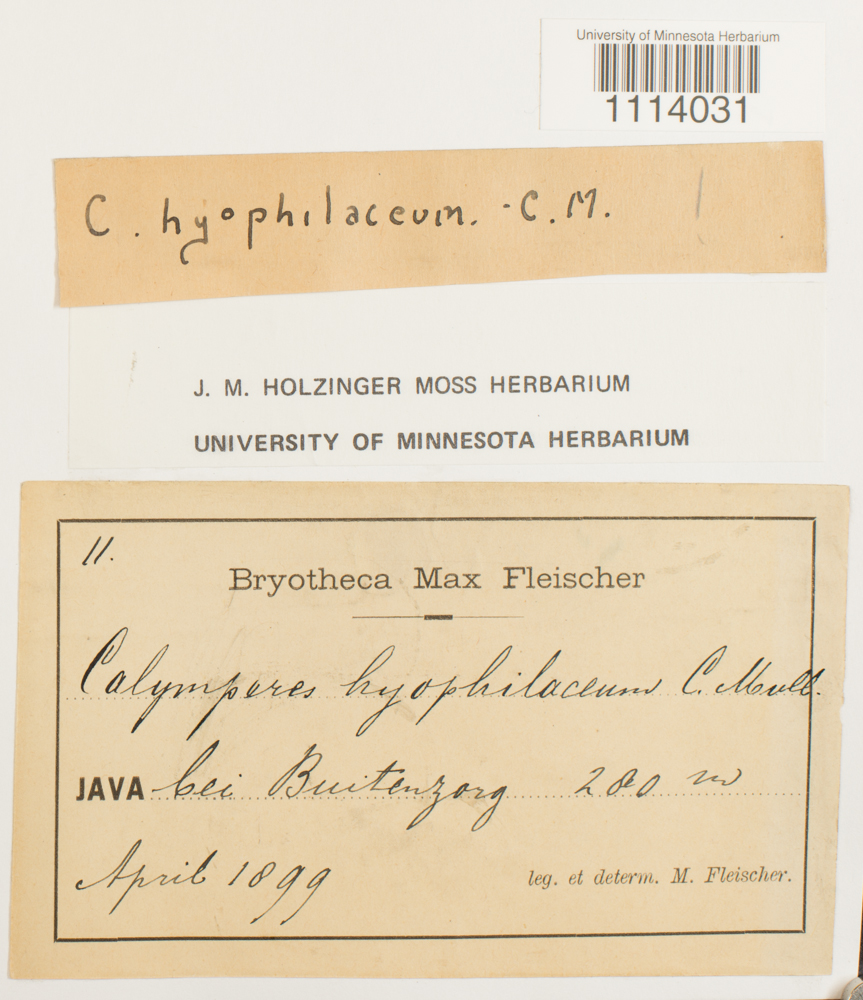 University of Minnesota Herbarium
1114031
C. hyophilaceum. - C. M.
J. M. HOLZINGER MOSS HERBARIUM
UNIVERSITY OF MINNESOTA HERBARIUM
11.
Bryotheca Max Fleischer
Calymperes hyophilaceum C. Mull.
JAVA bei Buitenzorg 280 m
April 1899
leg. et determ. M. Fleischer.